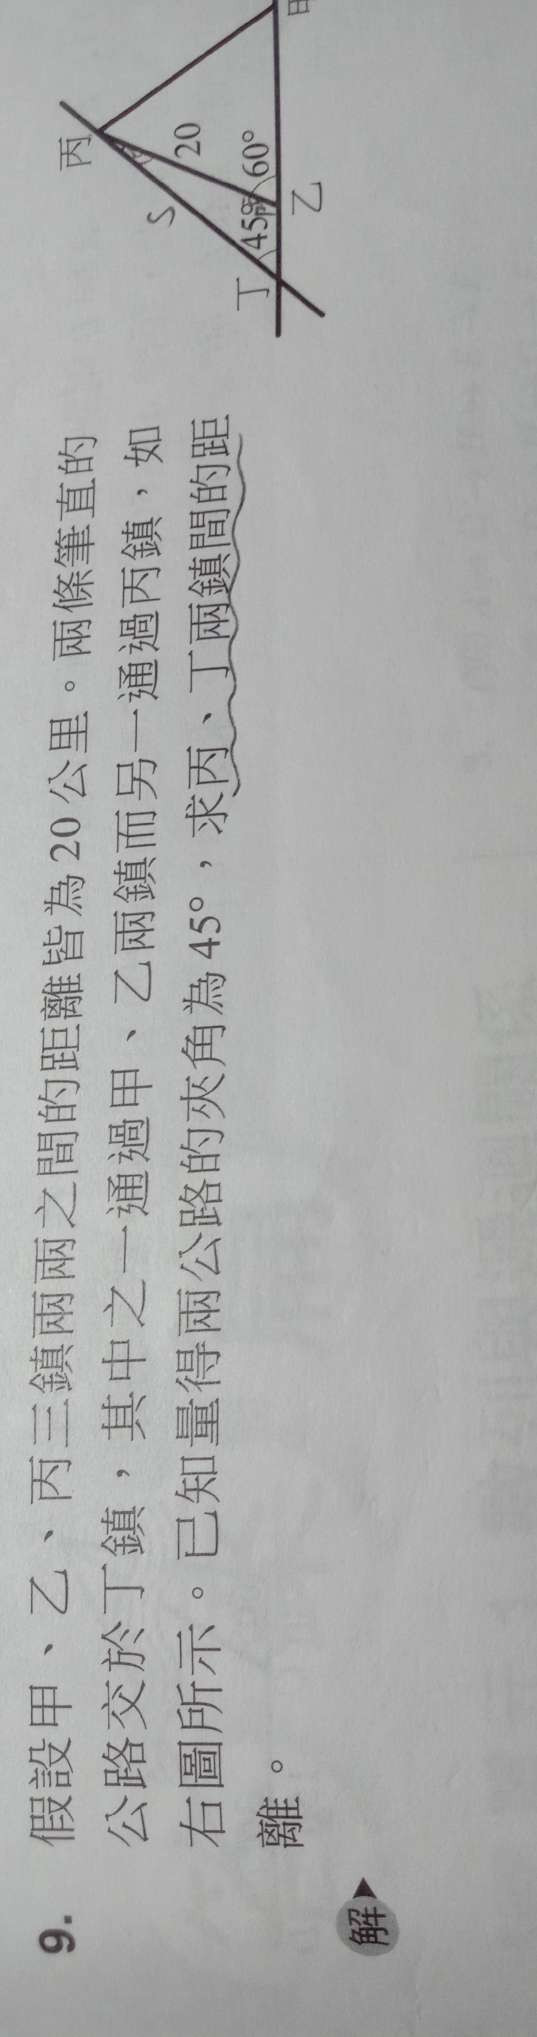 9. 假設甲、乙、丙三鎮兩兩之間的距離皆為20公里。兩條筆直的
公路交於丁鎮,其中之一通過甲、乙兩鎮而另一通過丙鎮,如
右圖所示。已知量得兩公路的夾角為45°,求丙、丁兩鎮間的距
離。
解
丙
S
20
丁
45°
60°
乙